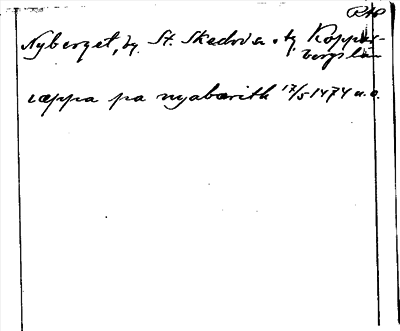 RAP
Nyberget, by. St. Skedvi sn. tg Koppar-
bergs län
uppa pa nyabærith 17/5 1474 u.a.